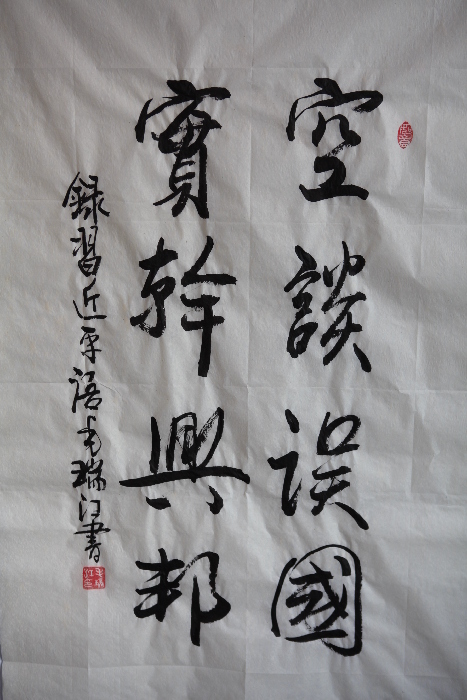 空談误國
實幹興邦
録習近平語毛瑞江書